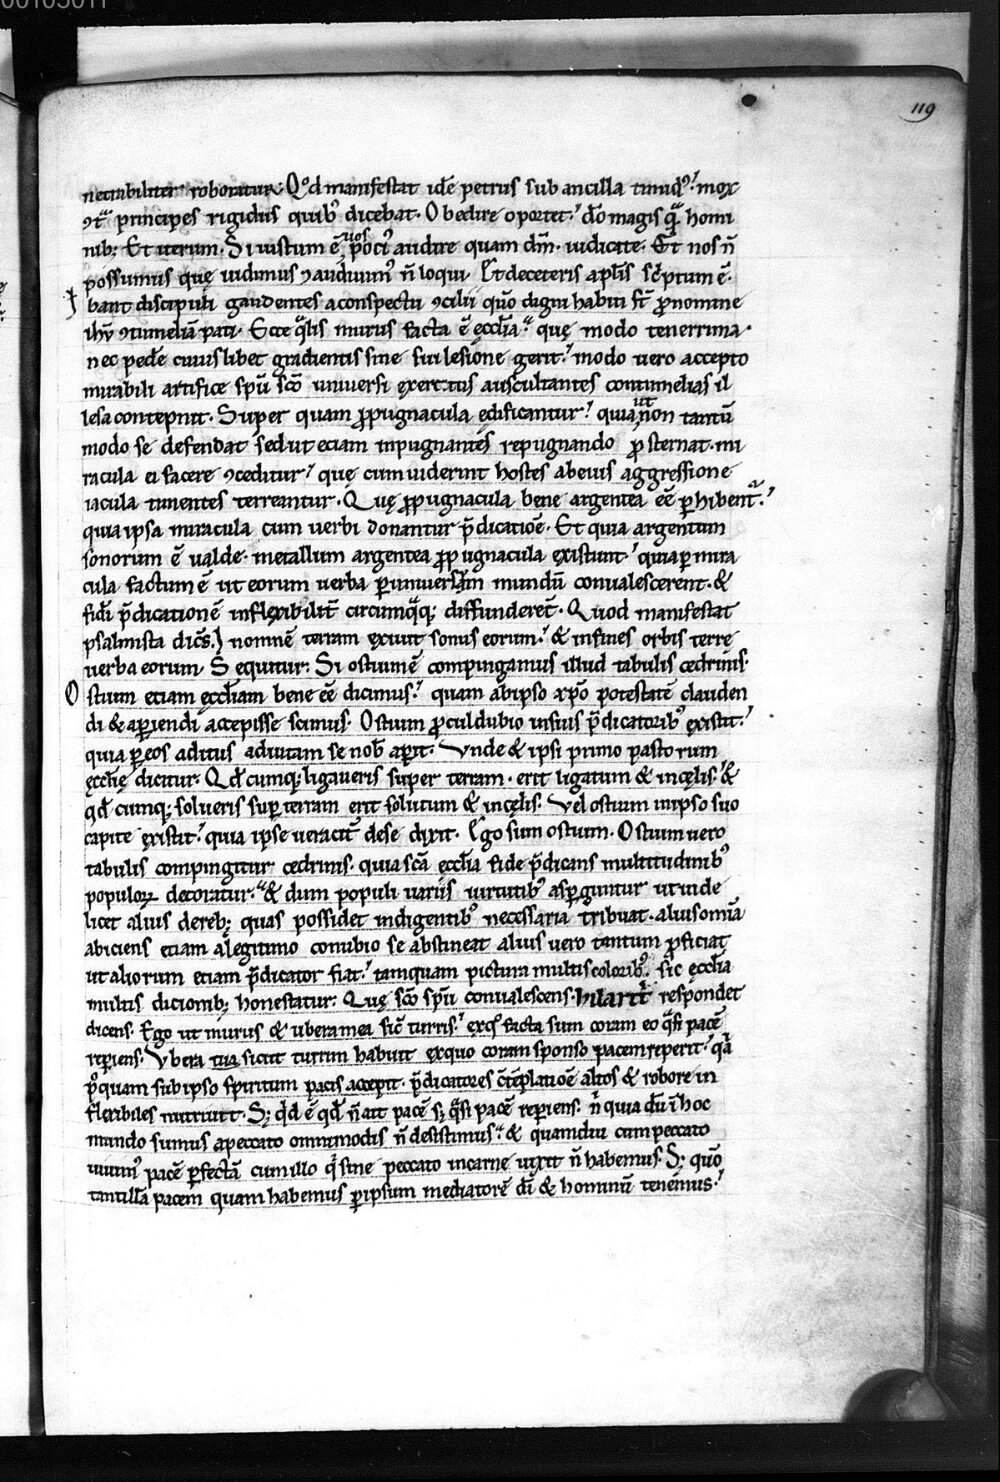 119
netrabiliter roboratur. Qd manifestat idē petrus sub ancilla timidꝰ. mox
ꝯtͣ principes rigidus quibꝰ dicebat. Obedire oportet. dō magis qͣ̄ homi
nib; Et iterum. Si iustum ē uos pociꝰ audire quam dm̄. iudicate. Et nos n̄
possumus quę uidimus ⁊ audiuimꝰ n̄ loqui. Et de ceteris aplīs sc̄ptum ē.
bant discipuli gaudentes a conspectu ꝯcilii quō digni habiti st̄ ꝓ nomine
ihū ꝯtumeliā pati. Ecce qͣlis murus facta ē ęccl̄ia. quę modo tenerrima.
nec pedē cuiuslibet gradientis sine sui lesione gerit. modo uero accepto
mirabili artifice spū scō uniuersi exercitus auscultantes contumelias il
lesa contepnit. Super quam ꝓpugnacula ędificantur. quia ut non tantū
modo se defendat sed ut eciam inpugnantes repugnando ꝓsternat. mi
racula ei facere ꝯceditur. quę cum uiderint hostes ab eius aggressione
iacula timentes terreantur. Quę ꝓpugnacula bene argentea eē ꝑhibent᷑.
quia ipsa miracula cum uerbi donantur p̄dicatiōe. Et quia argentum
sonorum ē ualde. metallum argentea ꝓpugnacula existunt. quia ꝑ mira
cula factum ē ut eorum uerba ꝑ uniuersum mundū conualescerent. &
fidi p̄dicationē inflexibilit̄ circumqͣq; diffunderet̄. Quod manifestat
psalmista dicēs. In omnē terram exiuit sonus eorum. & in fines orbis terre
uerba eorum. Sequitur. Si ostium ē compingamus illud tabulis cedrinis.
Ostium etiam ęccl̄iam bene eē dicimus. quam ab ipso xp̄o potestatē clauden
di & aꝑiendi accepisse scimus. Ostium ꝓculdubio in suis p̄dicatoribꝰ existit.
quia ꝑ eos aditus ad uitam se nob̄ aꝑit. Vnde & ipsi primo pastorum
ęccl̄ię dicitur. Qd̄cumq; ligaueris super terram. erit ligatum & in cęlis. &
qd̄cumq; solueris suꝑ terram erit solutum & in cęlis. Vel ostium in ipso suo
capite existit. quia ipse ueracit̄ de se dixit. Ego sum ostium. Ostium uero
tabulis compingitur cedrinis. quia scā ęccl̄ia fide p̄dicans multitudinibꝰ
populoꝝ decoratur. & dum populi uariis uirtutibꝰ asꝑguntur ut uide
licet alius de reb; quas possidet indigentibꝰ necessaria tribuat. alius omīa
abiciens etiam a legitimo conubio se abstineat alius uero tantum ꝓficiat
ut aliorum etiam p̄dicator fiat. tamquam pictura multis coloribꝰ. sic ęccl̄ia
multis dictionib; honestatur. Quę scō spū conualescens. hilarit̄ respondet
dicens. Ego ut murus & ubera mea sic̄ turris. ex qͦ facta sum coram eo qͣsi pacē
reꝑiens. Vbera tua sicut turrim habuit ex quo coram sponso pacem reperit. qͥa
pͦquam sub ipso spiritum pacis accepit. p̄dicatores c̄templatiōe altos & robore in
flexibiles nutriuit. S; qͥd ē qd̄ n̄ ait pacē s; qͣsi pacē reperiens. n̄ quia dū ī hoc
mundo sumus a peccato omnimodis n̄ desistimus. & quamdiu cum peccato
uiuimꝰ pacē ꝑfectā cum illo qͥ sine peccato in carne uixit n̄ habemus. S; quō
tantillā pacem quam habemus ꝑ ipsum mediatorē dī & hominū tenemus.